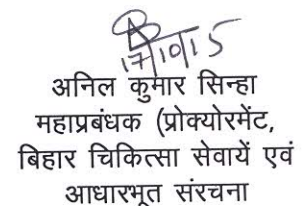 17/10/15
अनिल कुमार सिन्हा
महाप्रबंधक (प्रोक्योरमेंट,
बिहार चिकित्सा सेवायें एवं
आधारभूत संरचना